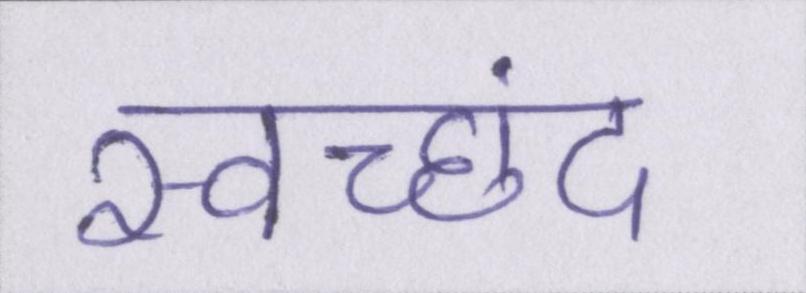 स्वच्छंद